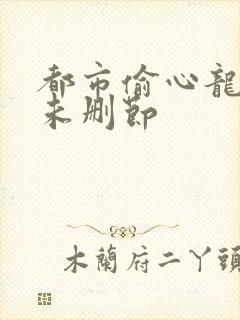 都市偷心龍
未删節
木蘭府二丫頭